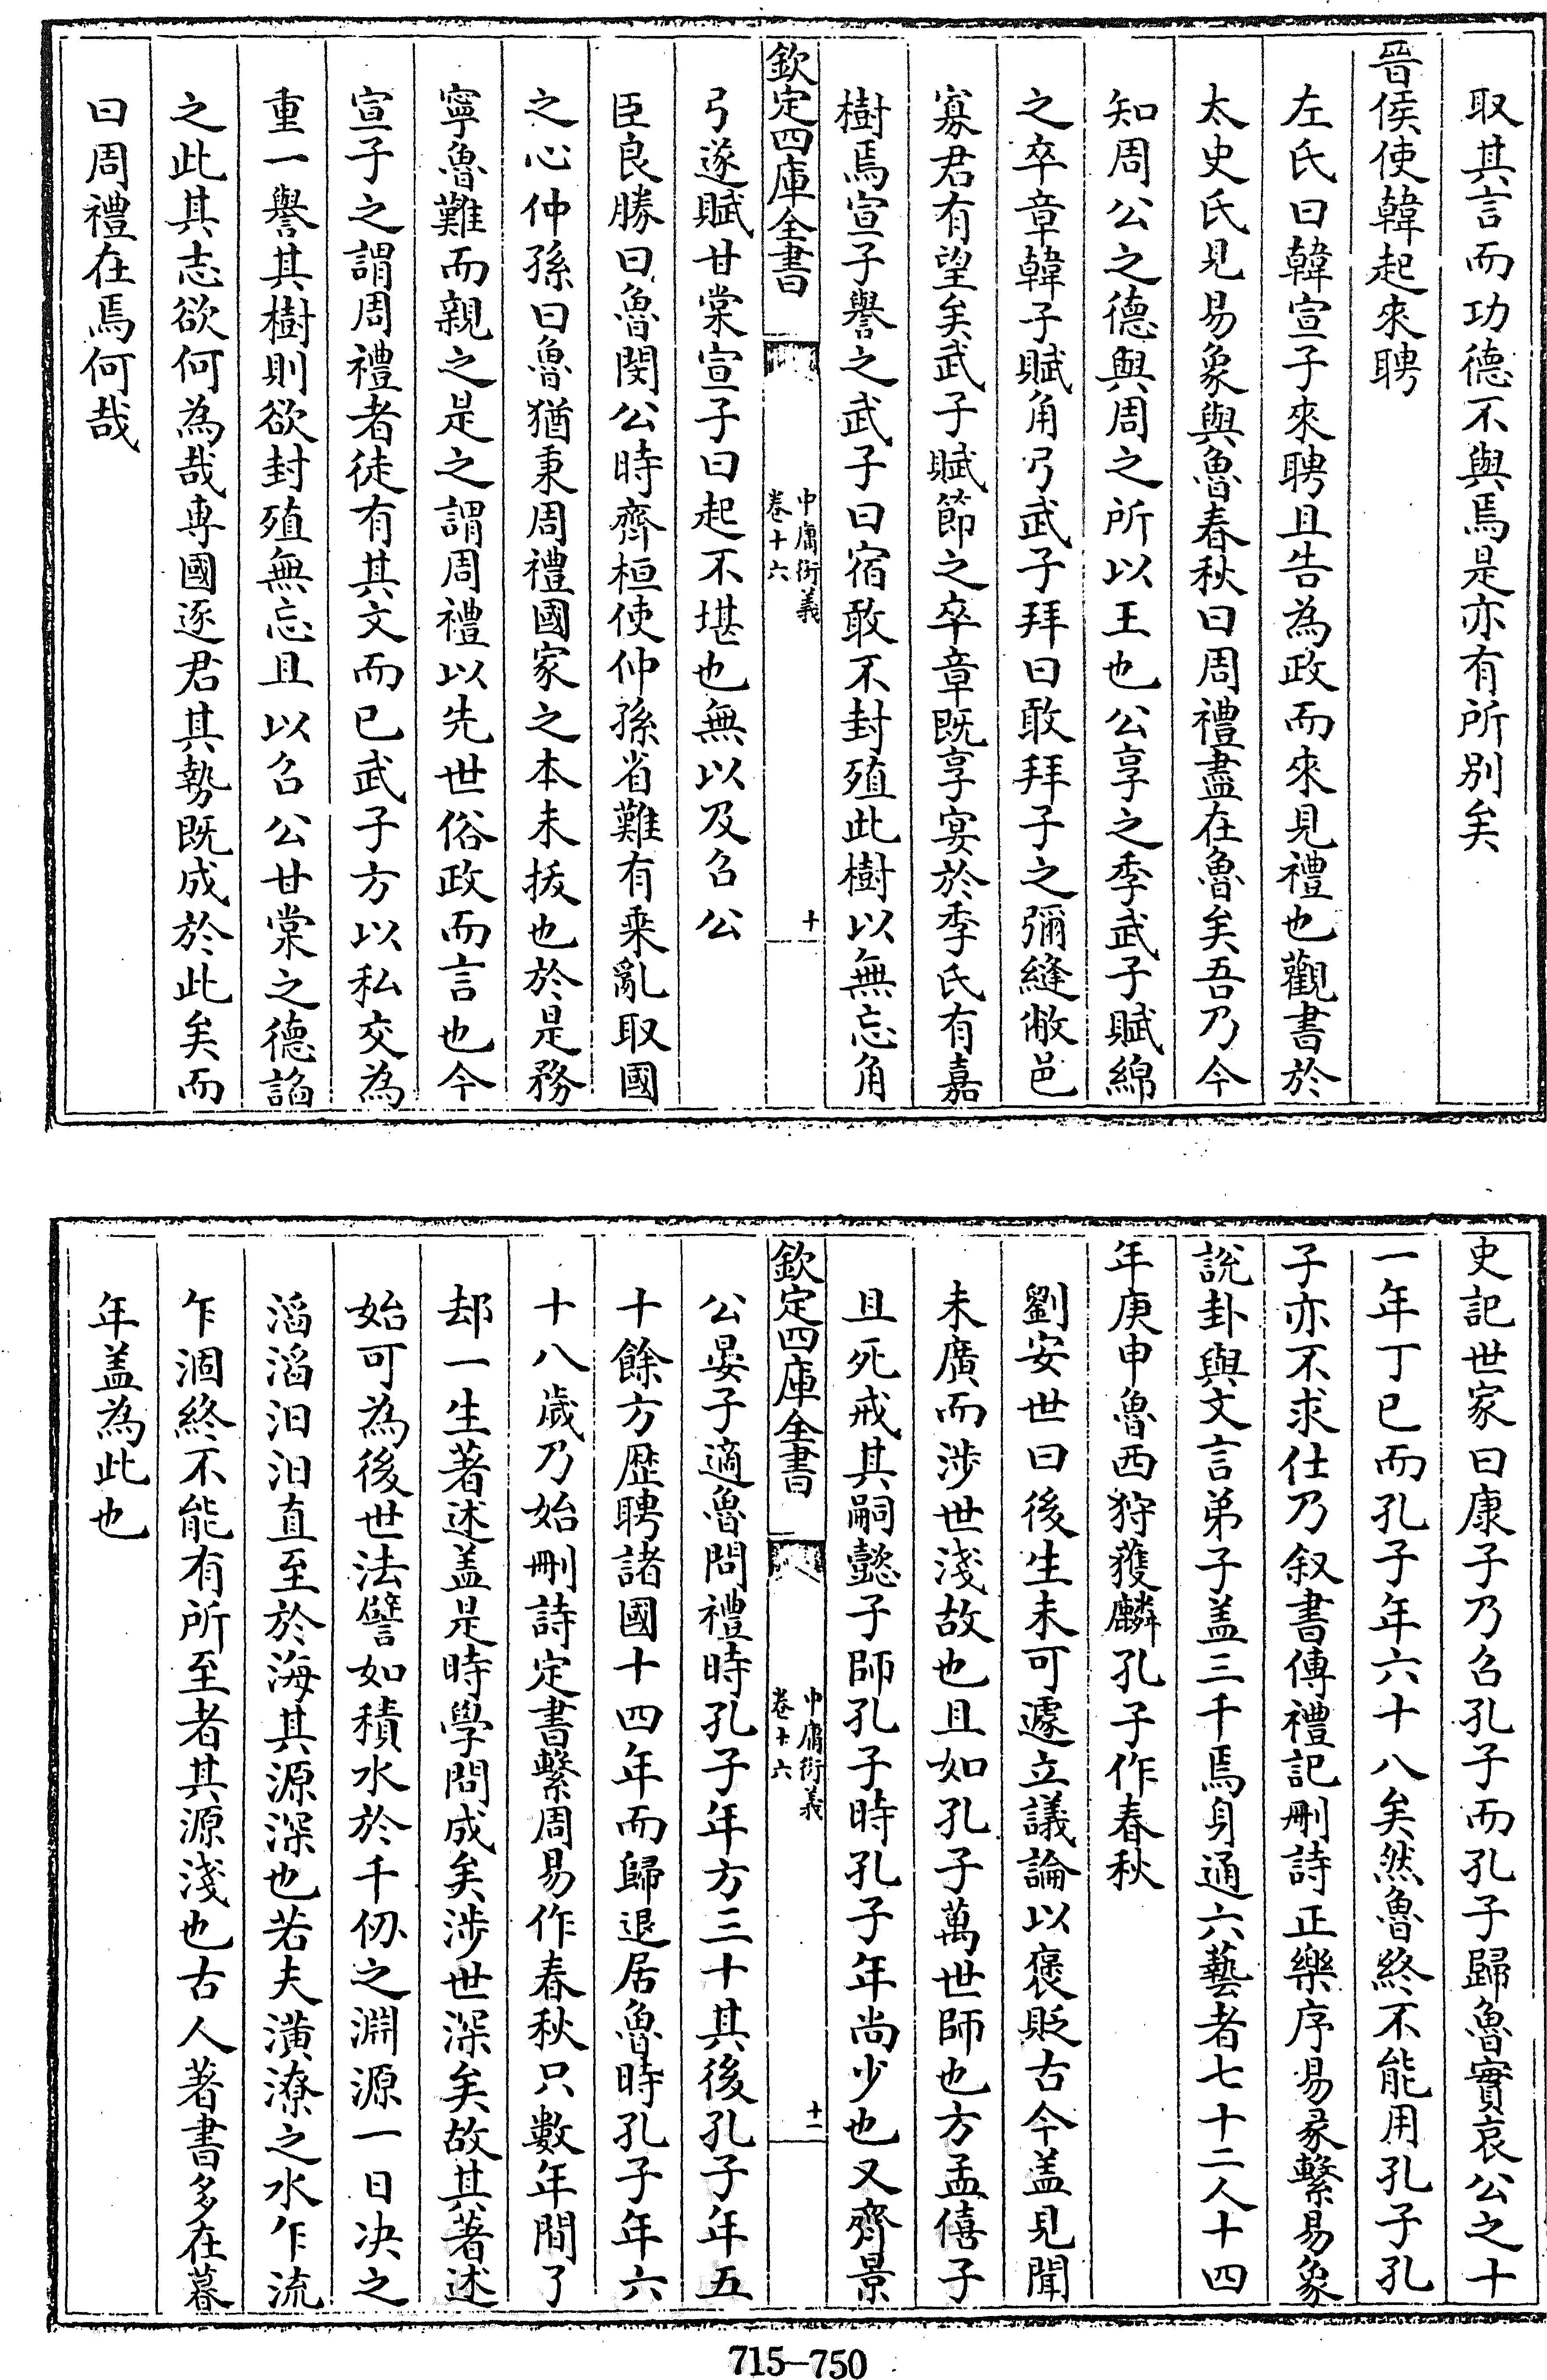 取其言而功德不與焉是亦有所别矣
晉侯使韓起來聘
左氏曰韓宣子來聘且告為政而來見禮也觀書於
太史氏見易象與魯春秋曰周禮盡在魯矣吾乃今
知周公之德與周之所以王也公享之季武子賦綿
之卒章韓子賦角弓武子拜曰敢拜子之彌縫敝邑
寡君有望矣武子賦節之卒章既享宴於季氏有嘉
樹焉宣子譽之武子曰宿敢不封殖此樹以無忘角
欽定四庫全書
中庸衍義
卷十六
十
弓遂賦甘棠宣子曰起不堪也無以及召公
臣良勝曰魯閔公時齊桓使仲孫省難有乘亂取國
之心仲孫曰魯猶秉周禮國家之本未拔也於是務
寧魯難而親之是之謂周禮以先世俗政而言也今
宣子之謂周禮者徒有其文而已武子方以私交為
重一譽其樹則欲封殖無忘且以召公甘棠之德諂
之此其志欲何為哉專國逐君其勢既成於此矣而
曰周禮在焉何哉
史記世家曰康子乃召孔子而孔子歸魯實哀公之十
一年丁巳而孔子年六十八矣然魯終不能用孔子孔
子亦不求仕乃叙書傳禮記刪詩正樂序易彖繫易象
說卦與文言弟子盖三千焉身通六藝者七十二人十四
年庚申魯西狩獲麟孔子作春秋
劉安世曰後生未可遽立議論以褒貶古今盖見聞
未廣而涉世淺故也且如孔子萬世師也方孟僖子
且死戒其嗣懿子師孔子時孔子年尚少也又齊景
欽定四庫全書
中庸衍義
卷十六
十二
公晏子適魯問禮時孔子年方三十其後孔子年五
十餘方歴聘諸國十四年而歸退居魯時孔子年六
十八歲乃始刪詩定書繫周易作春秋只數年間了
却一生著述盖是時學問成矣涉世深矣故其著述
始可為後世法譬如積水於千仭之淵源一日决之
滔滔汩汩直至於海其源深也若夫潢潦之水乍流
乍涸終不能有所至者其源淺也古人著書多在暮
年盖為此也
715-750